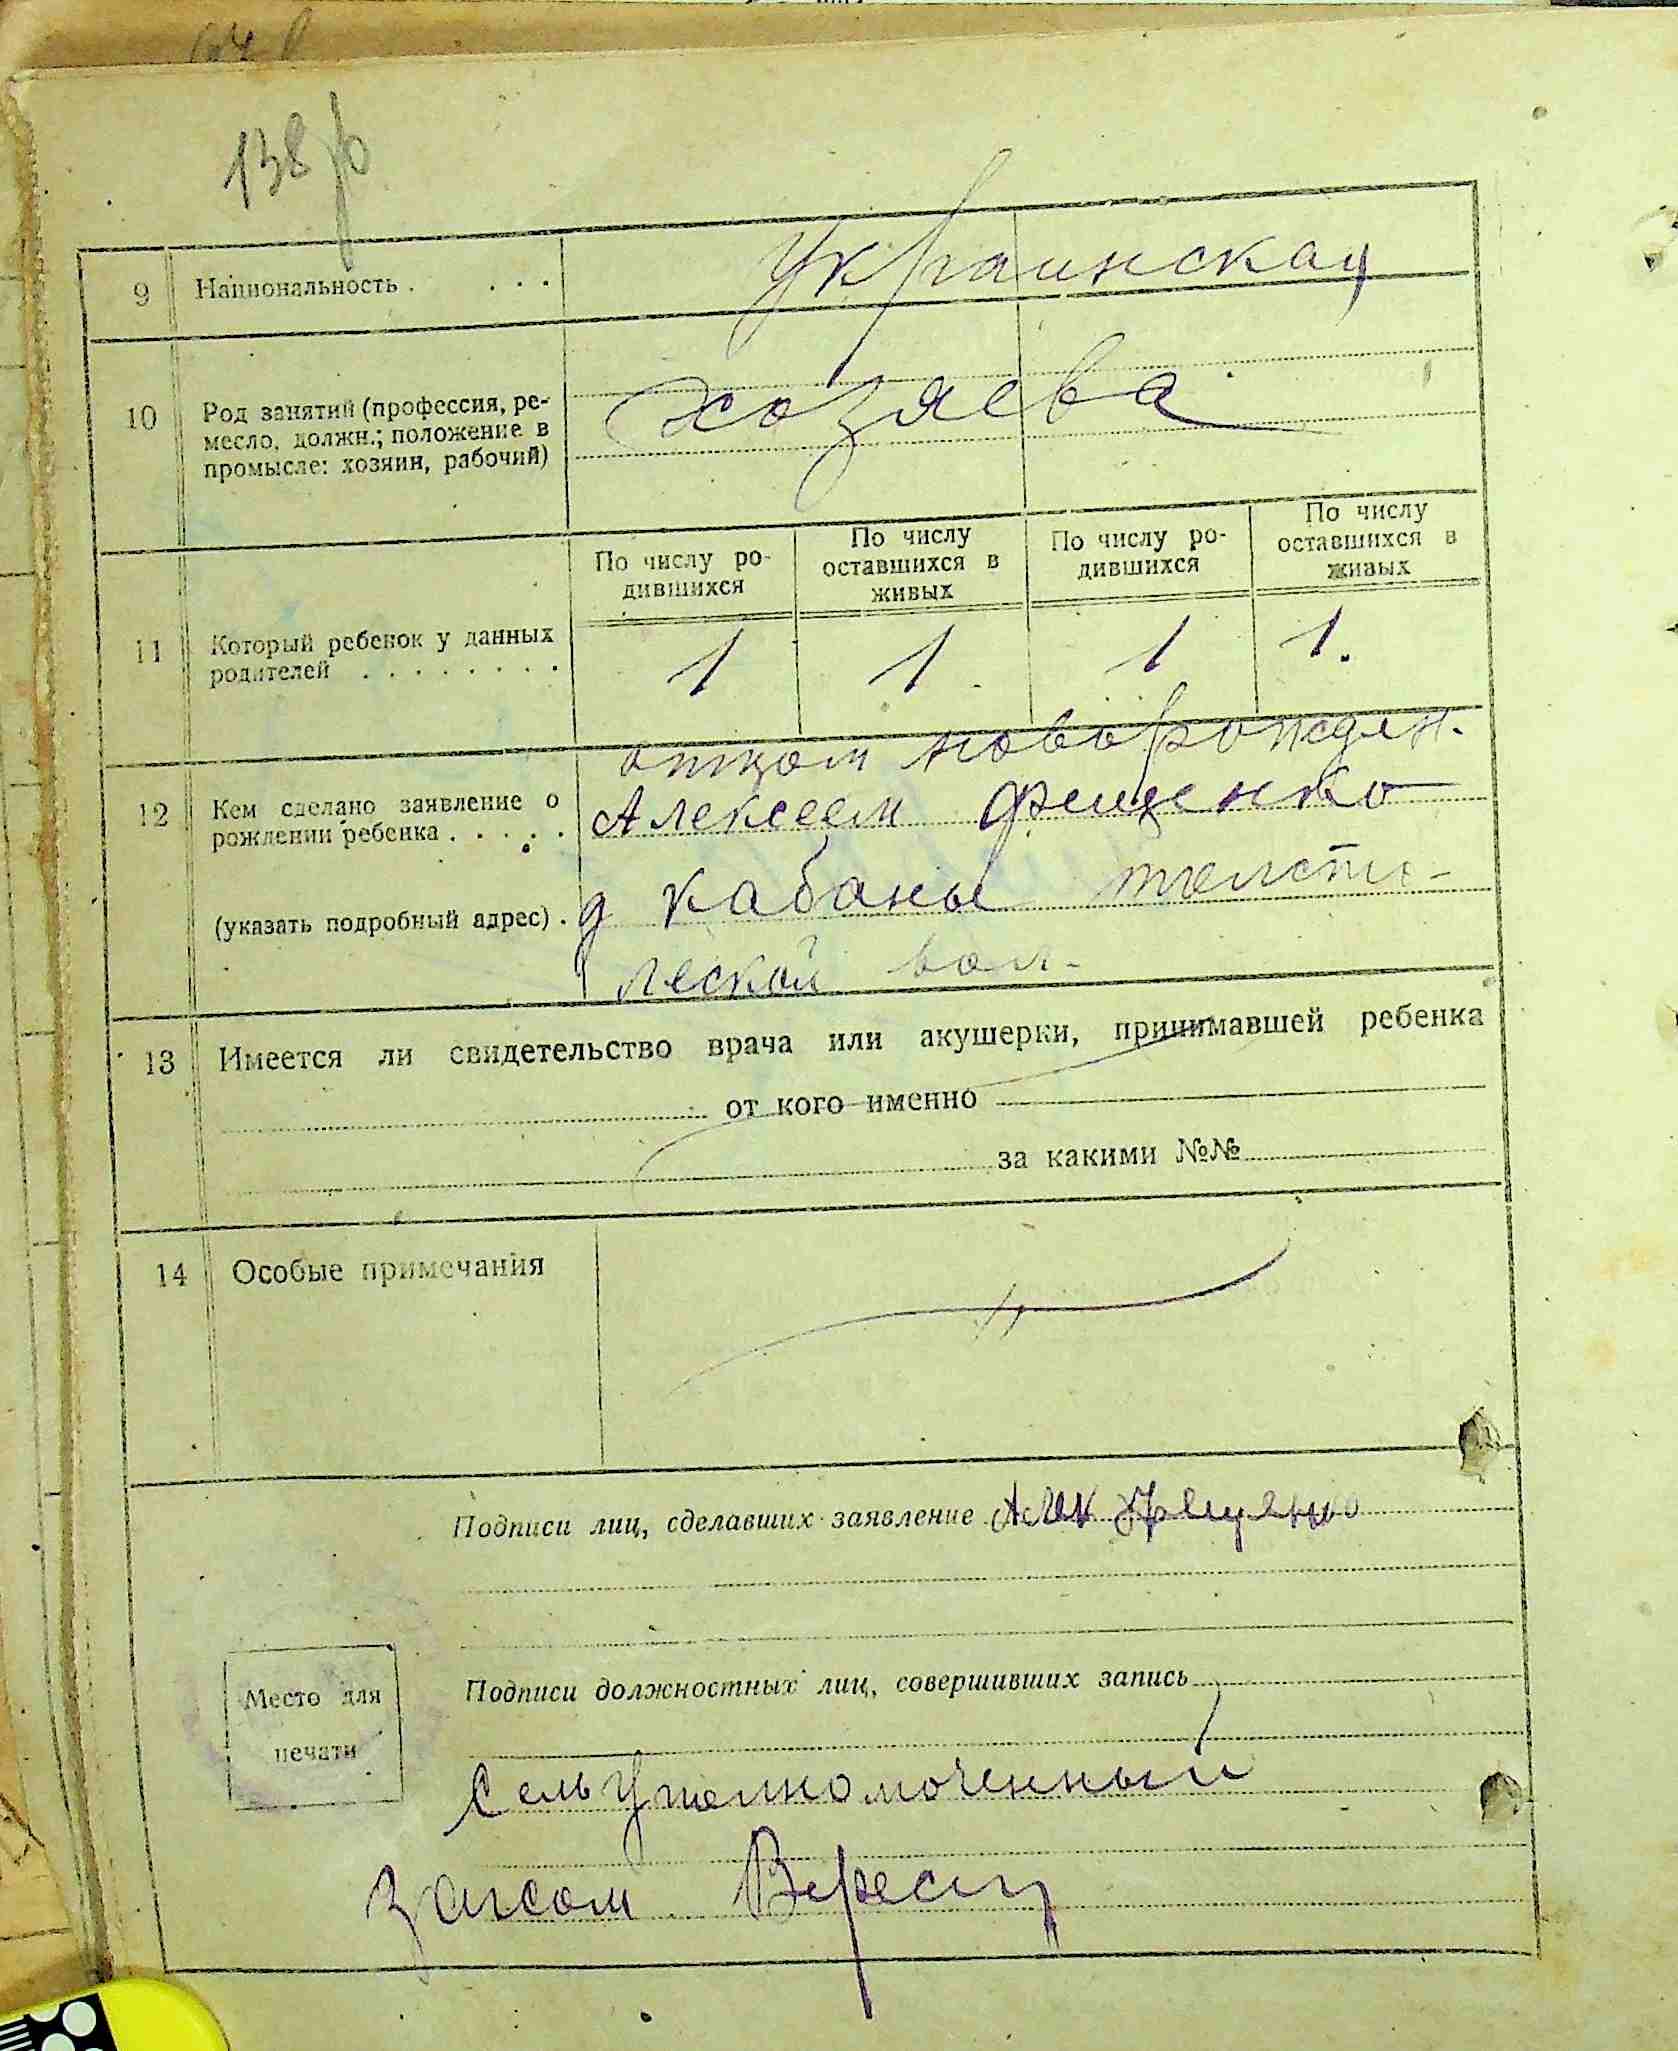 138
9 Национальность . . . . Украинская
10 Род занятий (профессия, ре-
месло, должн.; положение в
промысле: хозяин, рабочий)
хозяева
По числу ро-
дившихся
По числу
оставшихся в
живых
По числу ро-
дившихся
По числу
оставшихся в
живых
11 Который ребенок у данных
родителей . . . . . . . .
1 1 1 1.
отцом новорожден.
12 Кем сделано заявление о
рождении ребенка . . . . .
Алексеем Фещенко
(указать подробный адрес) . д Кабаны толсто-
леской вол.
13 Имеется ли свидетельство врача или акушерки, принимавшей ребенка
от кого именно
за какими №№
14 Особые примечания
Подписи лиц, сделавших заявление Алек Фещенко
Место для
печати
Подписи должностных лиц, совершивших запись
Сельуполномоченный
загсом